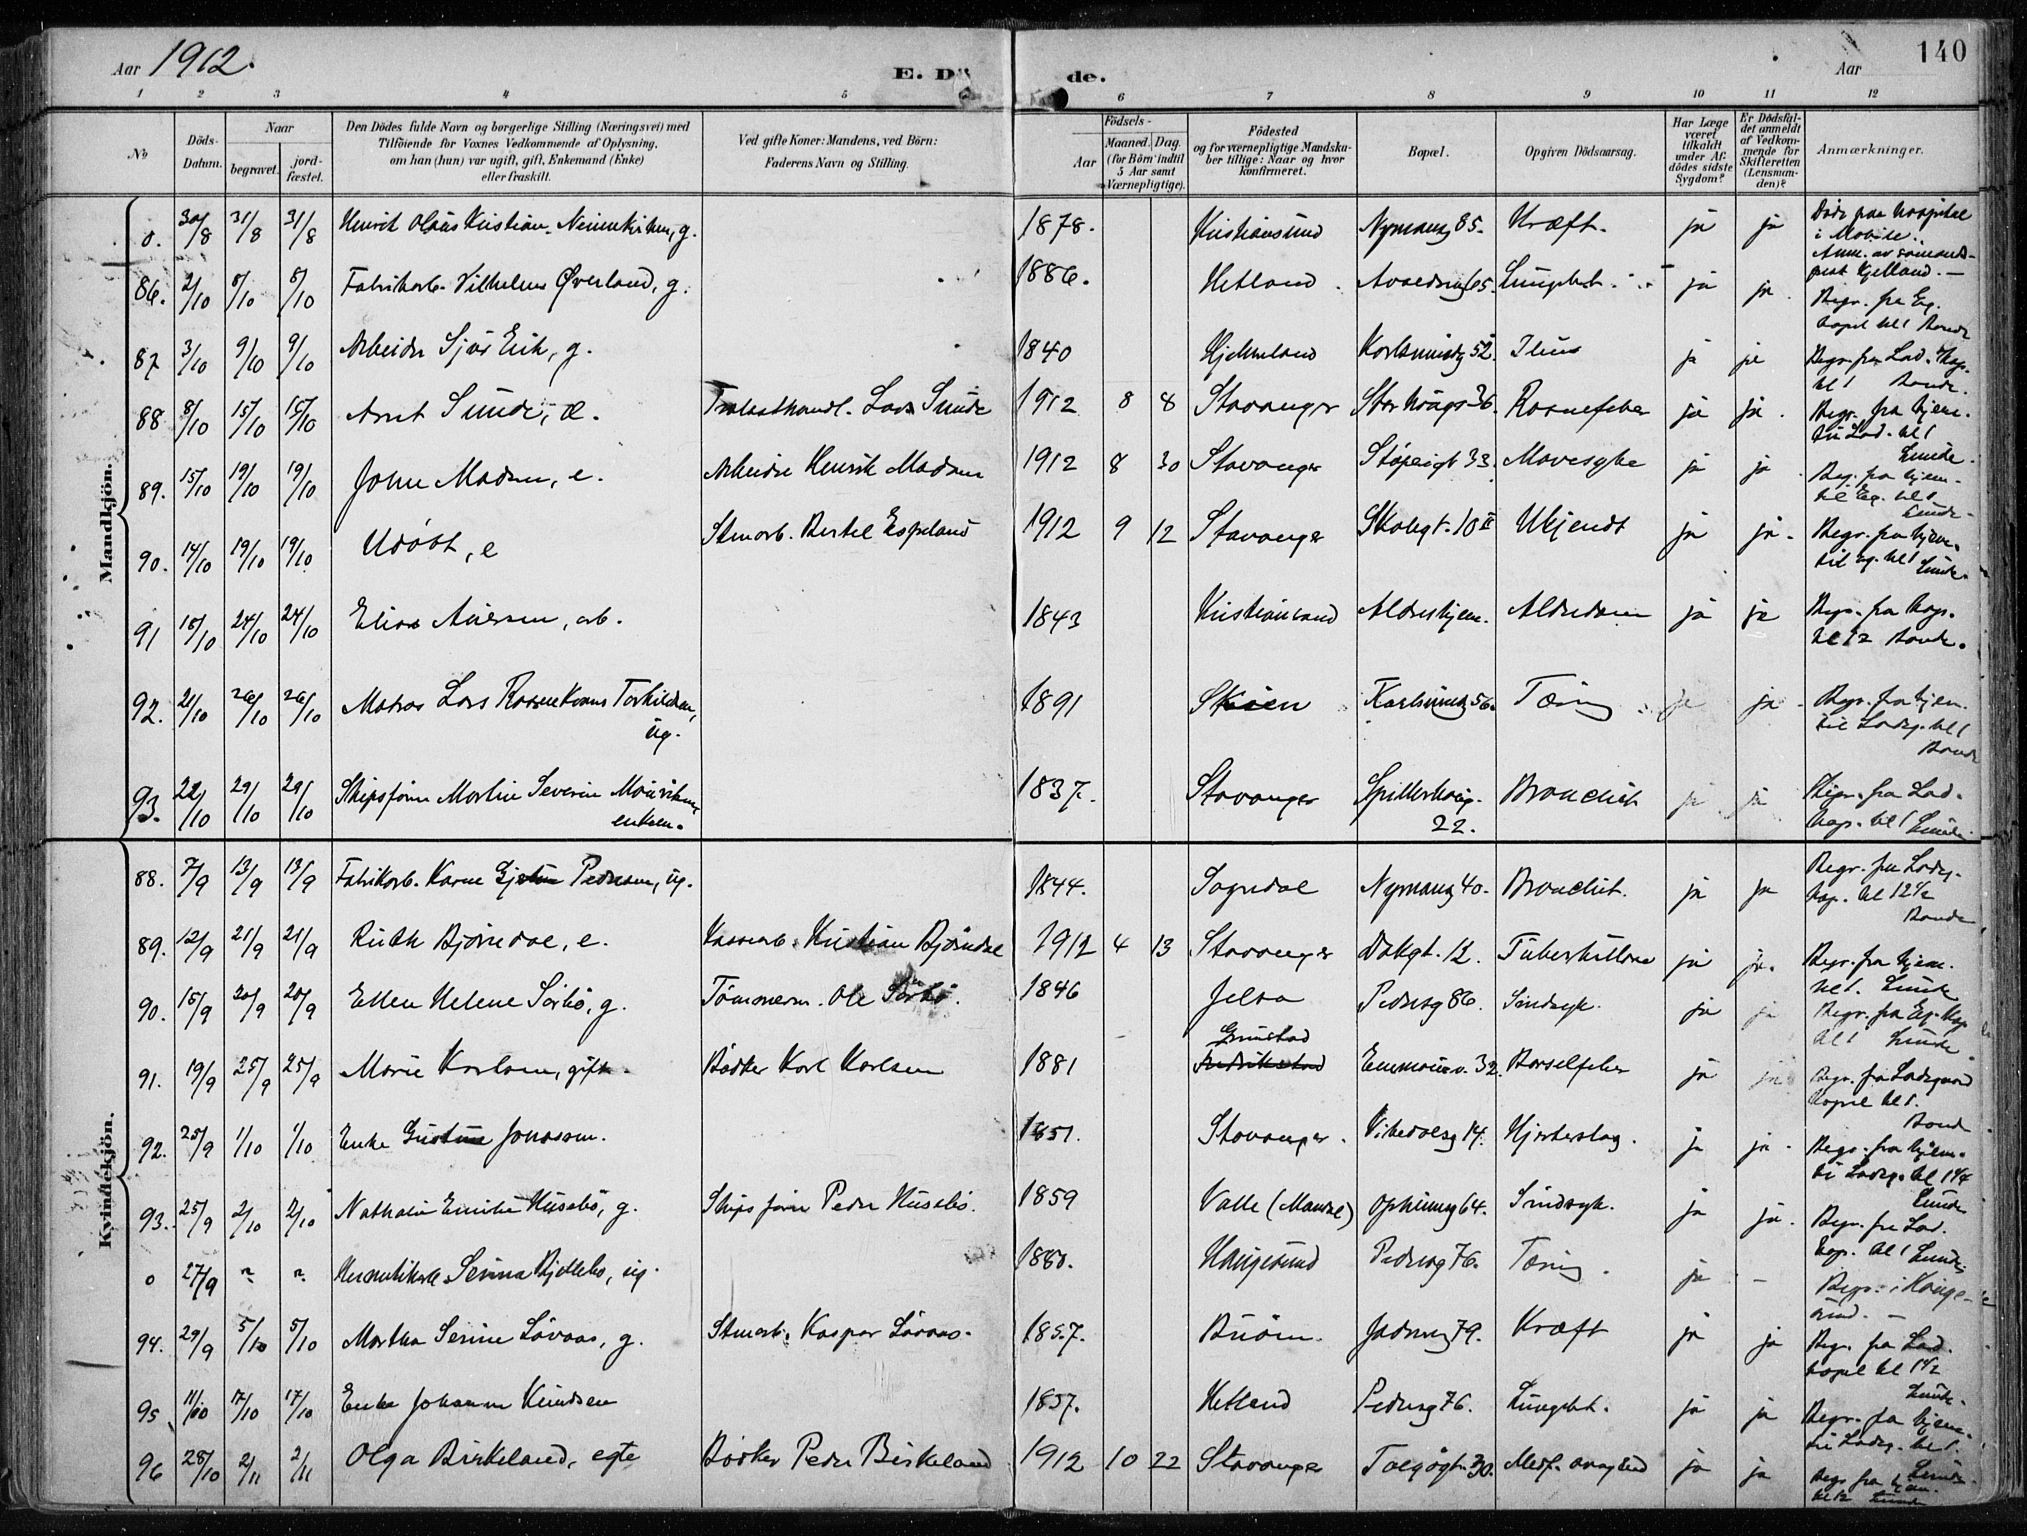 Aar 1912.
E. Dö de.
Aar
140
1 2 3 4 5 6 7 8 9 10 11 12
No
Döds-Datum.
Naar
begravet.
jord-fæstet.
Den Dödes fulde Navn og borgerlige Stilling (Næringsvei) med
Tilföiende for Voxnes Vedkommende af Oplysning,
om han (hun) var ugift, gift, Enkemand (Enke)
eller fraskilt.
Ved gifte Koner: Mandens, ved Börn:
Faderens Navn og Stilling.
Födsels-
Aar
Maaned. Dag.
(for Börn indtil
5 Aar samt
Værnepligtige).
Födested
og for værnepligtige Mandska-
ber tillige: Naar og hvor
konfirmeret.
Bopæl.
Opgiven Dödsaarsag.
Har Læge
været
tilkaldt
under Af-
dödes sidste
Sygdom?
Er Dödsfal-
det anmeldt
af Vedkom-
mende for
Skifteretten
(Lensman-
den)?
Anmærkninger.
Mandkjön.
0. 30/8 31/8 31/8 Henrik Olaus Kristian, g. 1878. Kristiansund Nymansg 85. Kræft. ja ja Döde paa hospital
i Mobile.
86. 2/10 8/10 8/10 Fabrikarb. Vilhelm Øverland, g. 1886. Hetland 65. Lungebet. ja ja. Kjelland.
Begr. fra Eg.
kapel kl 1
87 3/10 9/10 9/10 Arbeider Erik, g. 1840 Hjelmeland Karlsmindeg 52. Ilius ja ja Begr. fra Lad. kap.
kl 1
88 8/10 15/10 15/10 Arnt Sunde, æ. Lars Sunde 1912 8 8 Stavanger Storhaugs 36. Rosnefeber ja ja. Begr. fra hjem.
til Lad. kl 1
Lunde.
89. 15/10 19/10 19/10 John Madsen, e. Arbeider Henrik Madsen 1912 8 30 Stavanger Støperigt 33. Mavesyke ja ja. Beg. fra hjem.
til Eg. kl 1
Lunde.
90. 14/10 19/10 19/10 Udöbt, e Stenarb. Bertel Espeland 1912 9 12 Stavanger Skolegt. 10 II Ukjendt ja ja. Begr. fra hjem.
til Eg. kl 1 Lunde.
91 18/10 24/10 24/10 Elias, arb. 1843 Kristiansand Aldershjem. Alderdom ja ja Begr. fra Kap.
kl 12
92. 21/10 26/10 26/10 Matros Lars Rosenkrans Torkildsen,
ug. 1891 Skien Karlsmindeg 56. Tæring ja ja Begr. fra hjem.
til Ladeg. kl 1
93. 22/10 29/10 29/10 Skipsförer Martin Severin
enkem. 1837. Stavanger
22. Bronchit ja ja Begr. fra Lad.
kap. kl 1 Lunde.
Kvindekjön.
88. 7/9 13/9 13/9 Fabrikarb. Karen Pedersen, ug. 1844. Sogndal Nymansg 40. Bronchit. ja ja Begr. fra Ladeg.
kap. kl 12 1/2
89. 12/9 21/9 21/9 Ruth Björndal, e. Kristian Björndal 1912 4 13 Stavanger Dokgt. 12. Tuberkulose ja ja. Begr. fra hjem.
kl 1. Lunde
90. 15/9 20/9 20/9 Ellen Helene Sörbö, g. Tömmerm. Ole Sörbö. 1846 Jelsa Pedersg 86. Sindsyk. ja ja Begr. fra Eg. kap
kl 1 Lunde.
91. 19/9 25/9 25/9 Marie Karlsen, gift. Bödker Karl Karlsen 1881 Grimstad
Fredrikstad Emmausv. 32. Barselfeber ja ja Begr. fra Ladegaard
kapel kl 1.
92. 25/9 1/10 1/10 Enke Gustine Jonassen. 1851. Stavanger. Vikedalsg 14. Hjerteslag. ja ja. Begr. fra hjem.
til Ladeg. kl 1 1/4
Lunde
93. 25/9 2/10 2/10 Nathalie Emilie Husebö, g. Skipsförer Peder Husebö. 1859 Valle (Mandal) Opheimsg 64. Sindsyk. ja ja. Begr. fra Lad.
kap. kl 1 Lunde
0 27/9 " " Serina, ug. 1860. Haugesund Pedersg 76. Tæring. ja – Begr. i Hauge-
sund. –
94. 29/9 5/10 5/10 Martha Serine Lövaas, g. Stenarb. Kaspar Lövaas. 1857. Jadersg 79. Kræft ja ja Begr. fra Lad.
kapel kl 1 1/2
Lunde.
95 11/10 17/10 17/10 Enke Johanne Knudsen 1837. Hetland Pedersg 76. Lungebet. ja ja Begr. fra hjem.
til Ladeg. kl 1.
Lunde.
96 28/10 2/11 2/11 Olga Birkeland, egte Bödker Peder Birkeland 1912 10 22 Stavanger 30. Medf. ja ja Begr. fra hjem.
kl 12 Lunde